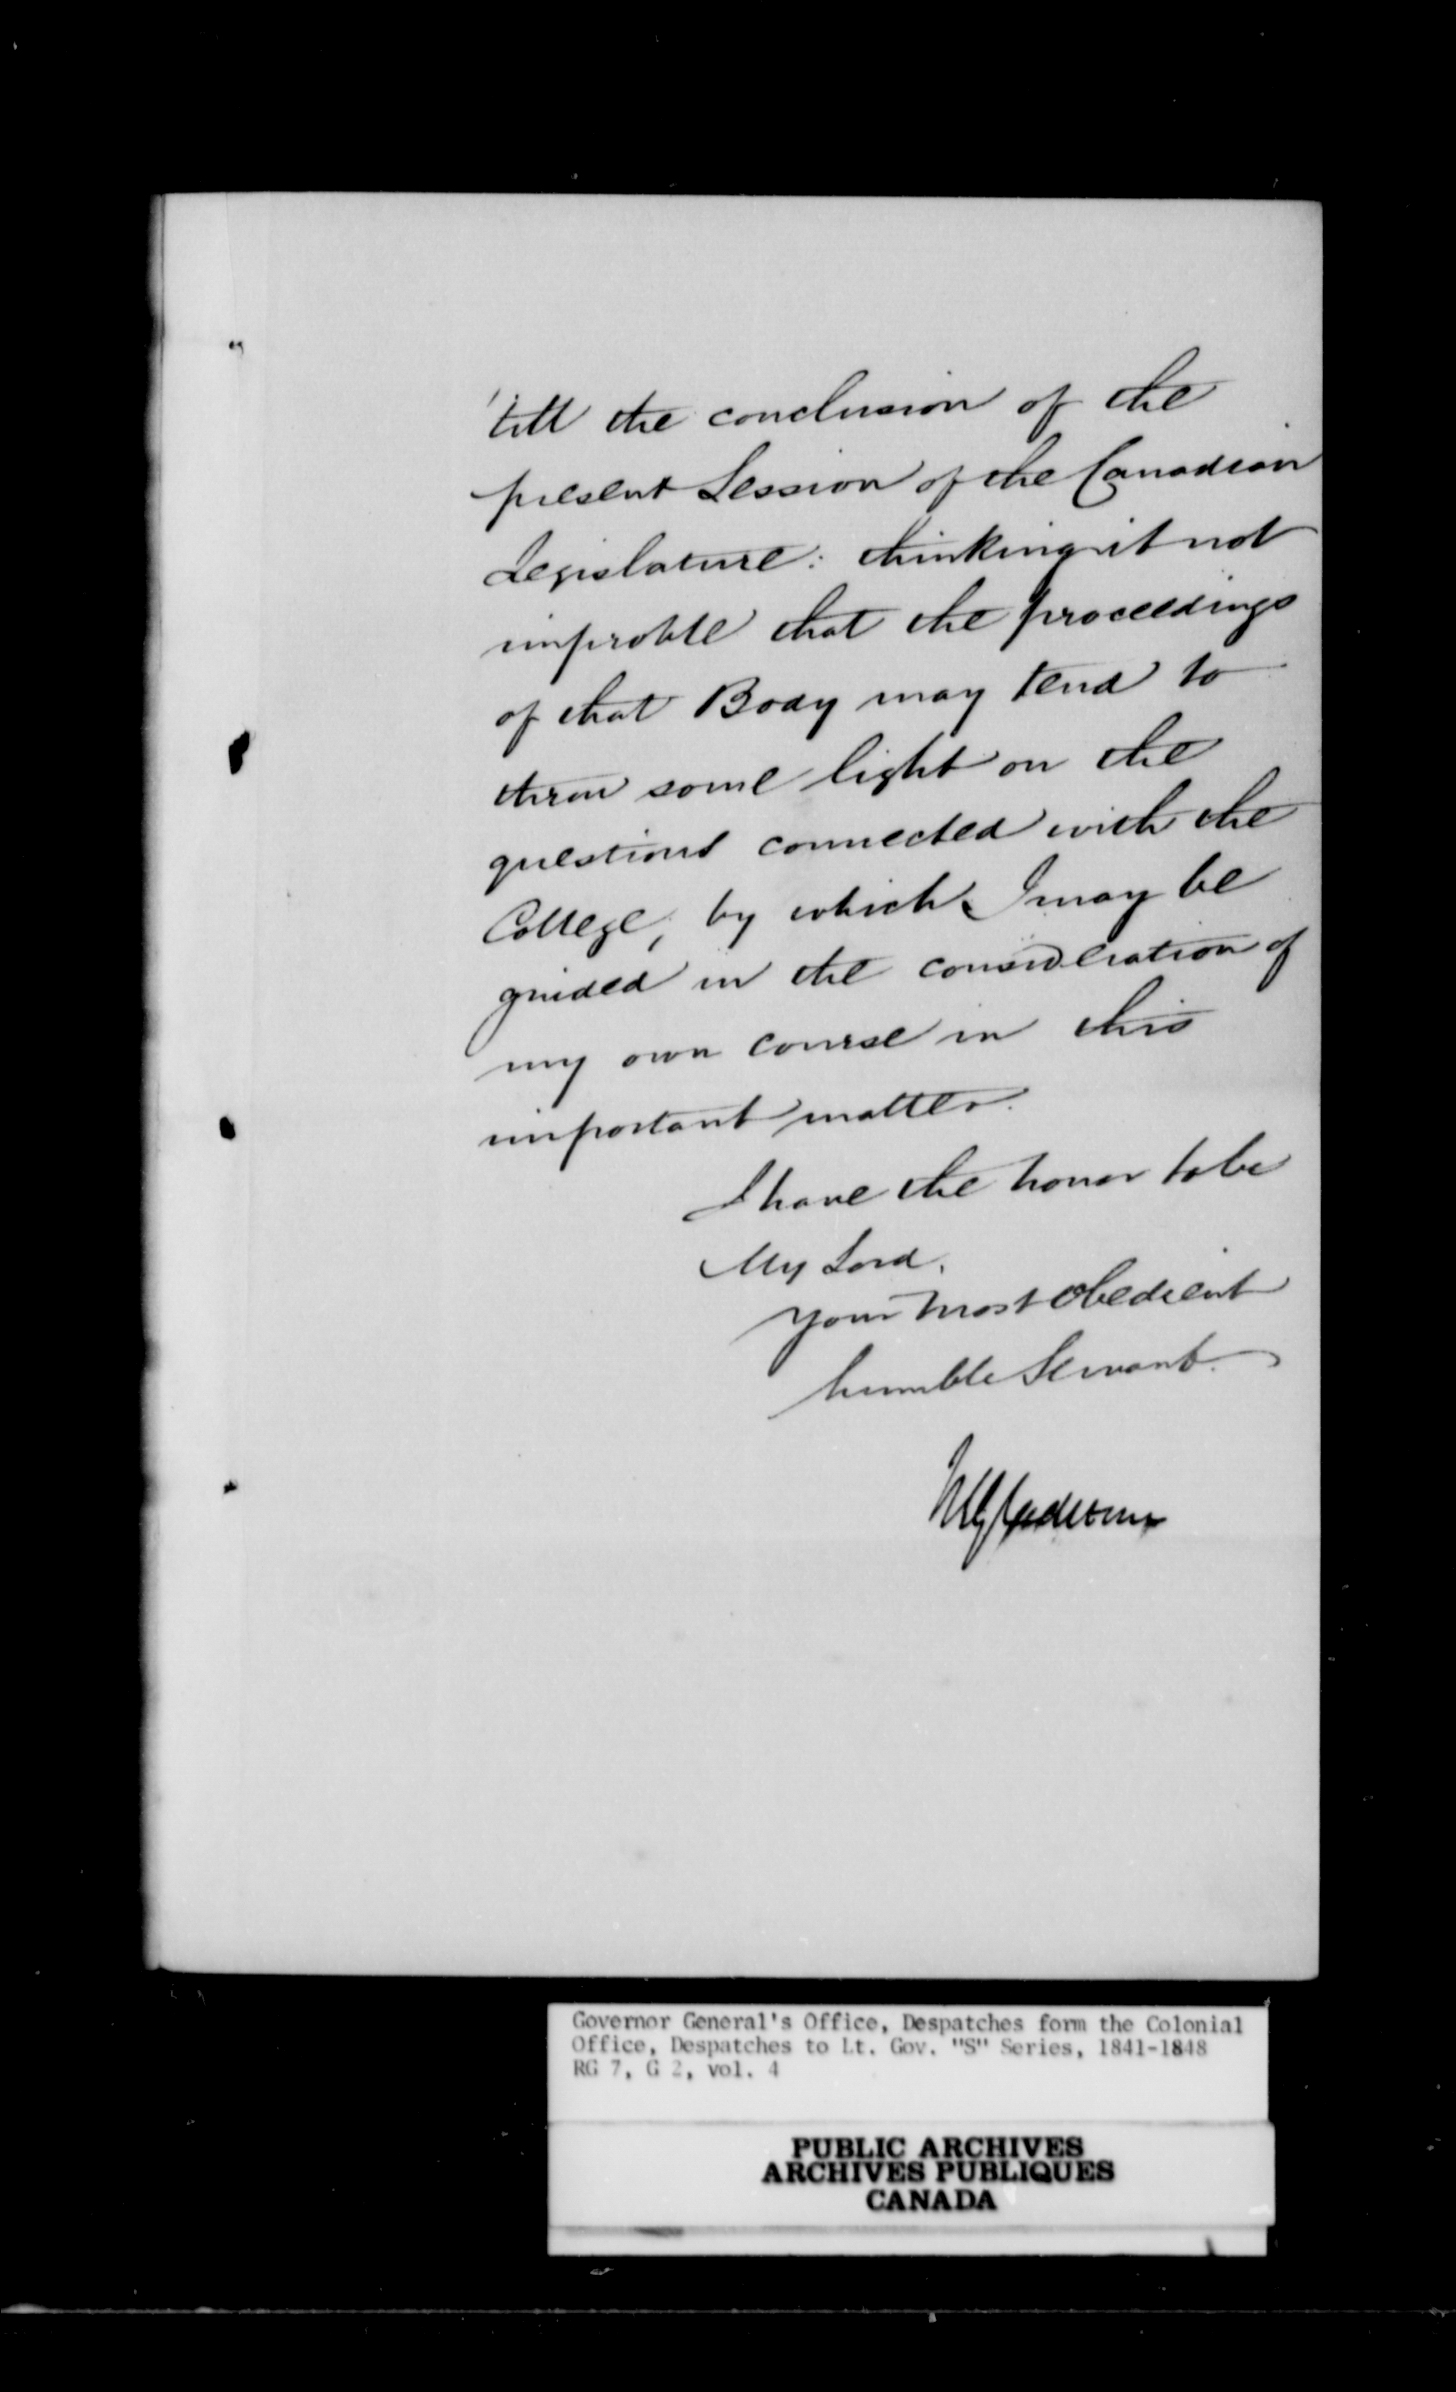 'till the conclusion of the
present Session of the Canadian
Legislature: thinking it not
improble that the proceedings
of that Body may tend to
throw some light on the
questions connected with the
College, by which I may be
guided in the consideration of
my own course in this
important matter.
I have the honor to be
My Lord,
Your most obedient
humble Servant.
W E Gladstone
Governor General's Office, Despatches form the Colonial
Office, Despatches to Lt. Gov. "S" Series, 1841-1848
RG 7, G 2, vol. 4
PUBLIC ARCHIVES
ARCHIVES PUBLIQUES
CANADA